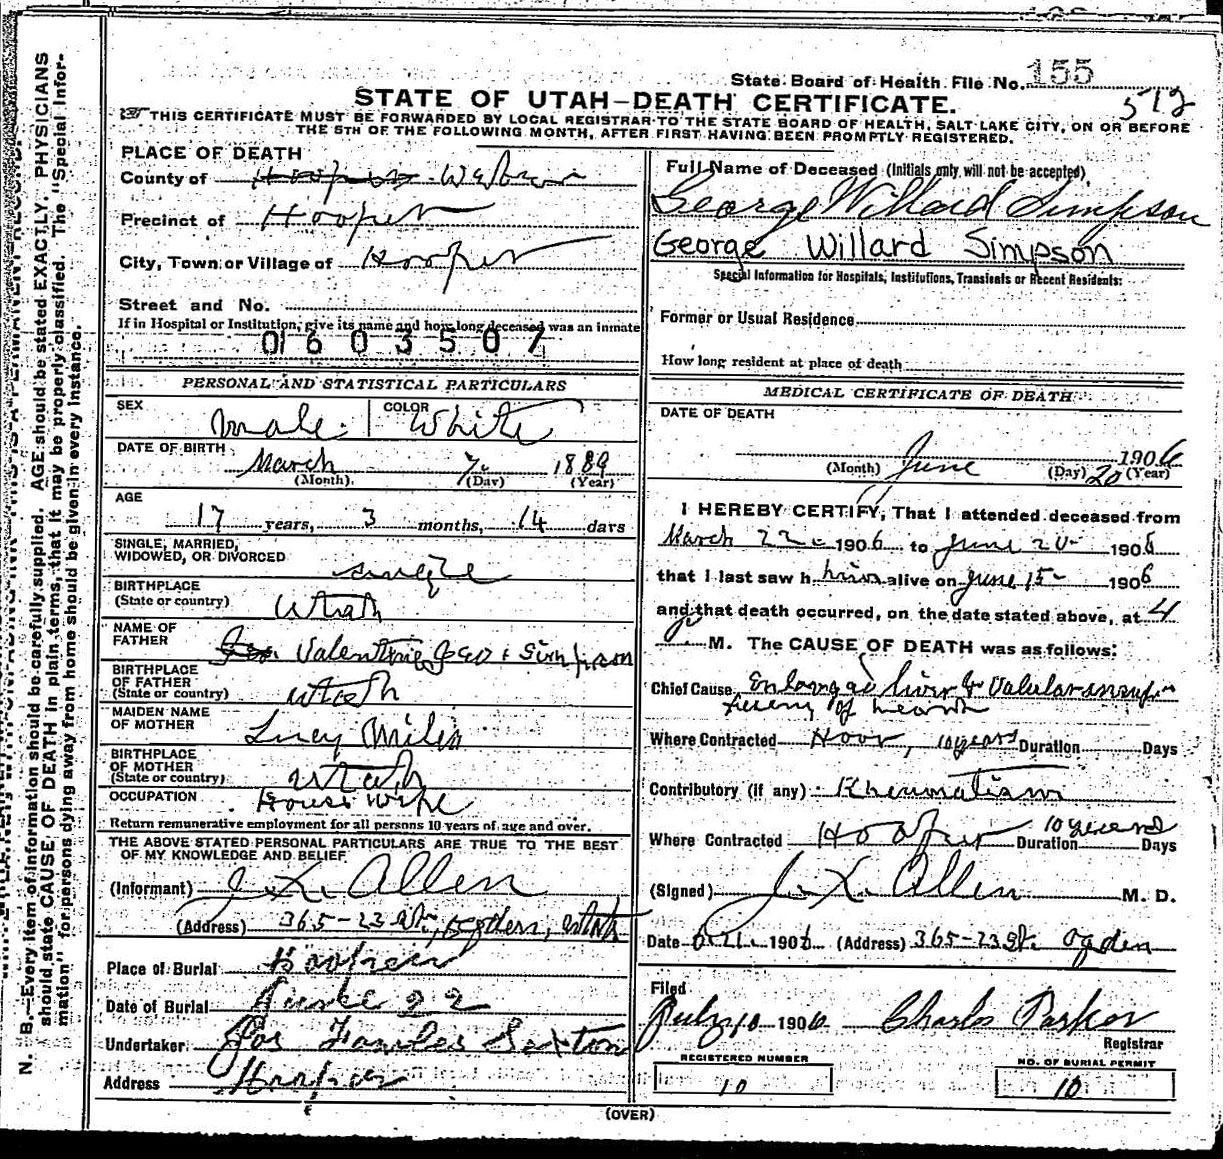 State Board of Health File No. 155
512
STATE OF UTAH–DEATH CERTIFICATE.
THIS CERTIFICATE MUST BE FORWARDED BY LOCAL REGISTRAR TO THE STATE BOARD OF HEALTH, SALT LAKE CITY, ON OR BEFORE
THE 5TH OF THE FOLLOWING MONTH, AFTER FIRST HAVING BEEN PROMPTLY REGISTERED.
PLACE OF DEATH
County of Hooper Weber
Precinct of Hooper
City, Town or Village of Hooper
Street and No.
If in Hospital or Institution, give its name and how long deceased was an inmate
0603507
PERSONAL AND STATISTICAL PARTICULARS
SEX male. COLOR White
DATE OF BIRTH March 7. 1889
(Month). (Day) (Year)
AGE
17 years, 3 months, 14 days
SINGLE, MARRIED,
WIDOWED, OR DIVORCED single
BIRTHPLACE
(State or country) Utah
NAME OF
FATHER Valentine Simpson
BIRTHPLACE
OF FATHER
(State or country) Utah
MAIDEN NAME
OF MOTHER Lucy Miles
BIRTHPLACE
OF MOTHER
(State or country) Utah
OCCUPATION House Wife
Return remunerative employment for all persons 10 years of age and over.
THE ABOVE STATED PERSONAL PARTICULARS ARE TRUE TO THE BEST
OF MY KNOWLEDGE AND BELIEF
(Informant) J. X. Allen
(Address) 365–23 St., Ogden, Utah
Place of Burial Hooper
Date of Burial June 22
Undertaker Jos Fowles Sexton
Address Hooper
Full Name of Deceased (Initials only will not be accepted)
George Willard Simpson
George Willard Simpson
Special Information for Hospitals, Institutions, Transients or Recent Residents:
Former or Usual Residence
How long resident at place of death
MEDICAL CERTIFICATE OF DEATH
DATE OF DEATH
June 20 1906
(Month) (Day) (Year)
I HEREBY CERTIFY, That I attended deceased from
March 22 1906 to June 20 1906
that I last saw him alive on June 15 1906
and that death occurred, on the date stated above, at 4
M. The CAUSE OF DEATH was as follows:
Chief Cause Enlarged liver & Valvular insuf
ficiency of heart
Where Contracted Hoop, 10 years Duration Days
Contributory (if any) Rheumatism
Where Contracted Hooper 10 years Duration Days
(Signed) J. X. Allen M. D.
Date 6.21. 1906 (Address) 365–23 St. Ogden
Filed
July 10 1906 Charles Parker
Registrar
REGISTERED NUMBER
10
NO. OF BURIAL PERMIT
10
(OVER)
N. B.—Every item of information should be carefully supplied. AGE should be stated EXACTLY. PHYSICIANS
should state CAUSE OF DEATH in plain terms, that it may be properly classified. The "Special Infor-
mation" for persons dying away from home should be given in every instance.